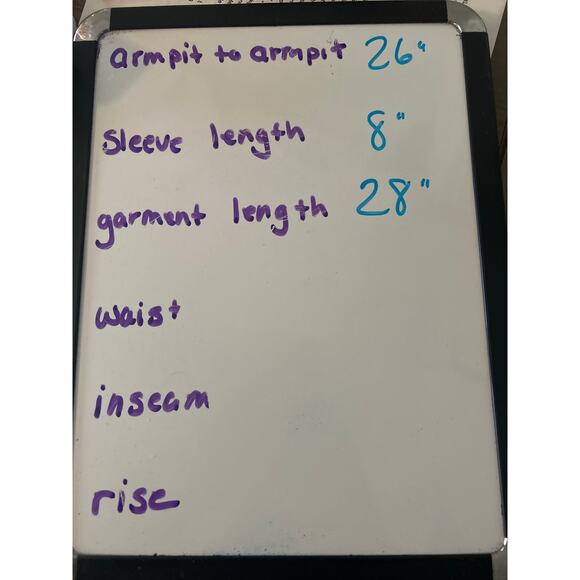 armpit to armpit 26"
Sleeve length 8"
garment length 28"
waist
inseam
rise